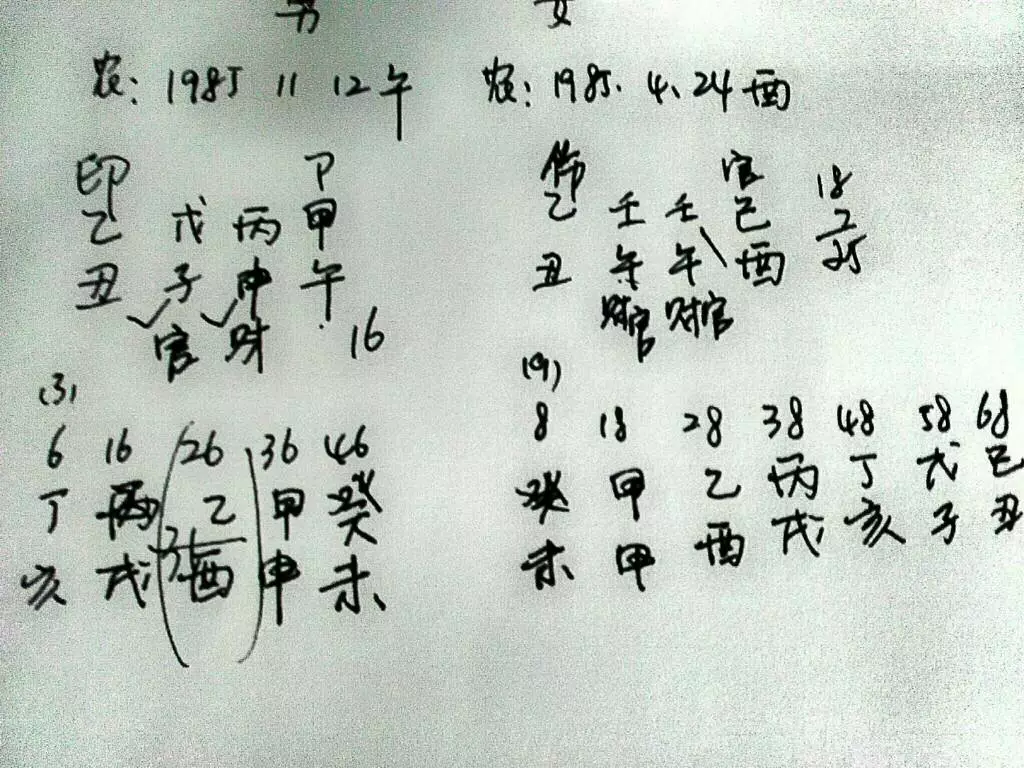 男 女
农: 1985 11 12午
农: 1985. 4. 24酉
印 卩
乙 戊 丙 甲
丑 子 申 午
官 财 16
(3)
6 16 26 36 46
丁 丙 乙 甲 癸
31
亥 戌 酉 申 未
伤 官
乙 壬 壬 己
丑 午 午 酉
财官 财官
18
7
25
(9)
8 18 28 38 48 58 68
癸 甲 乙 丙 丁 戊 己
未 申 酉 戌 亥 子 丑